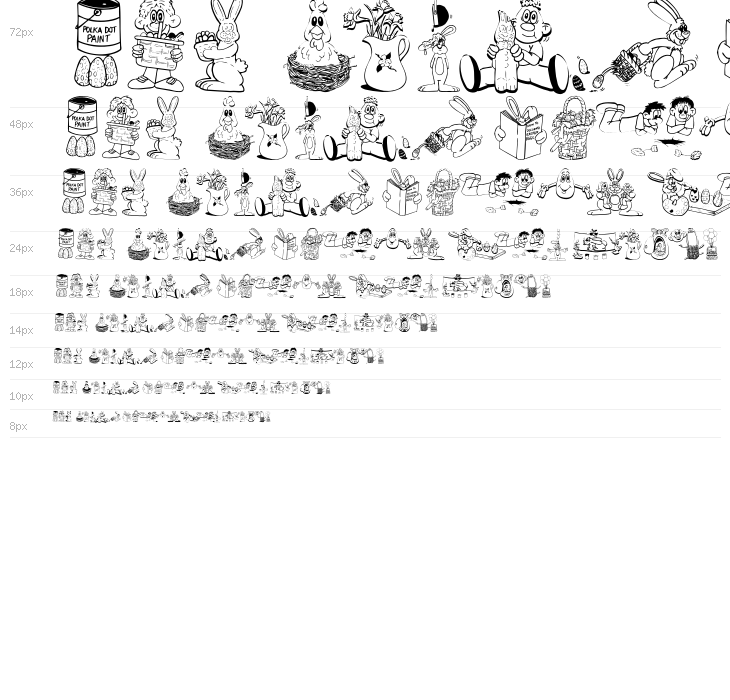 72px
POLKA DOT
PAINT
48px
POLKA DOT
PAINT
36px
24px
18px
14px
12px
10px
8px